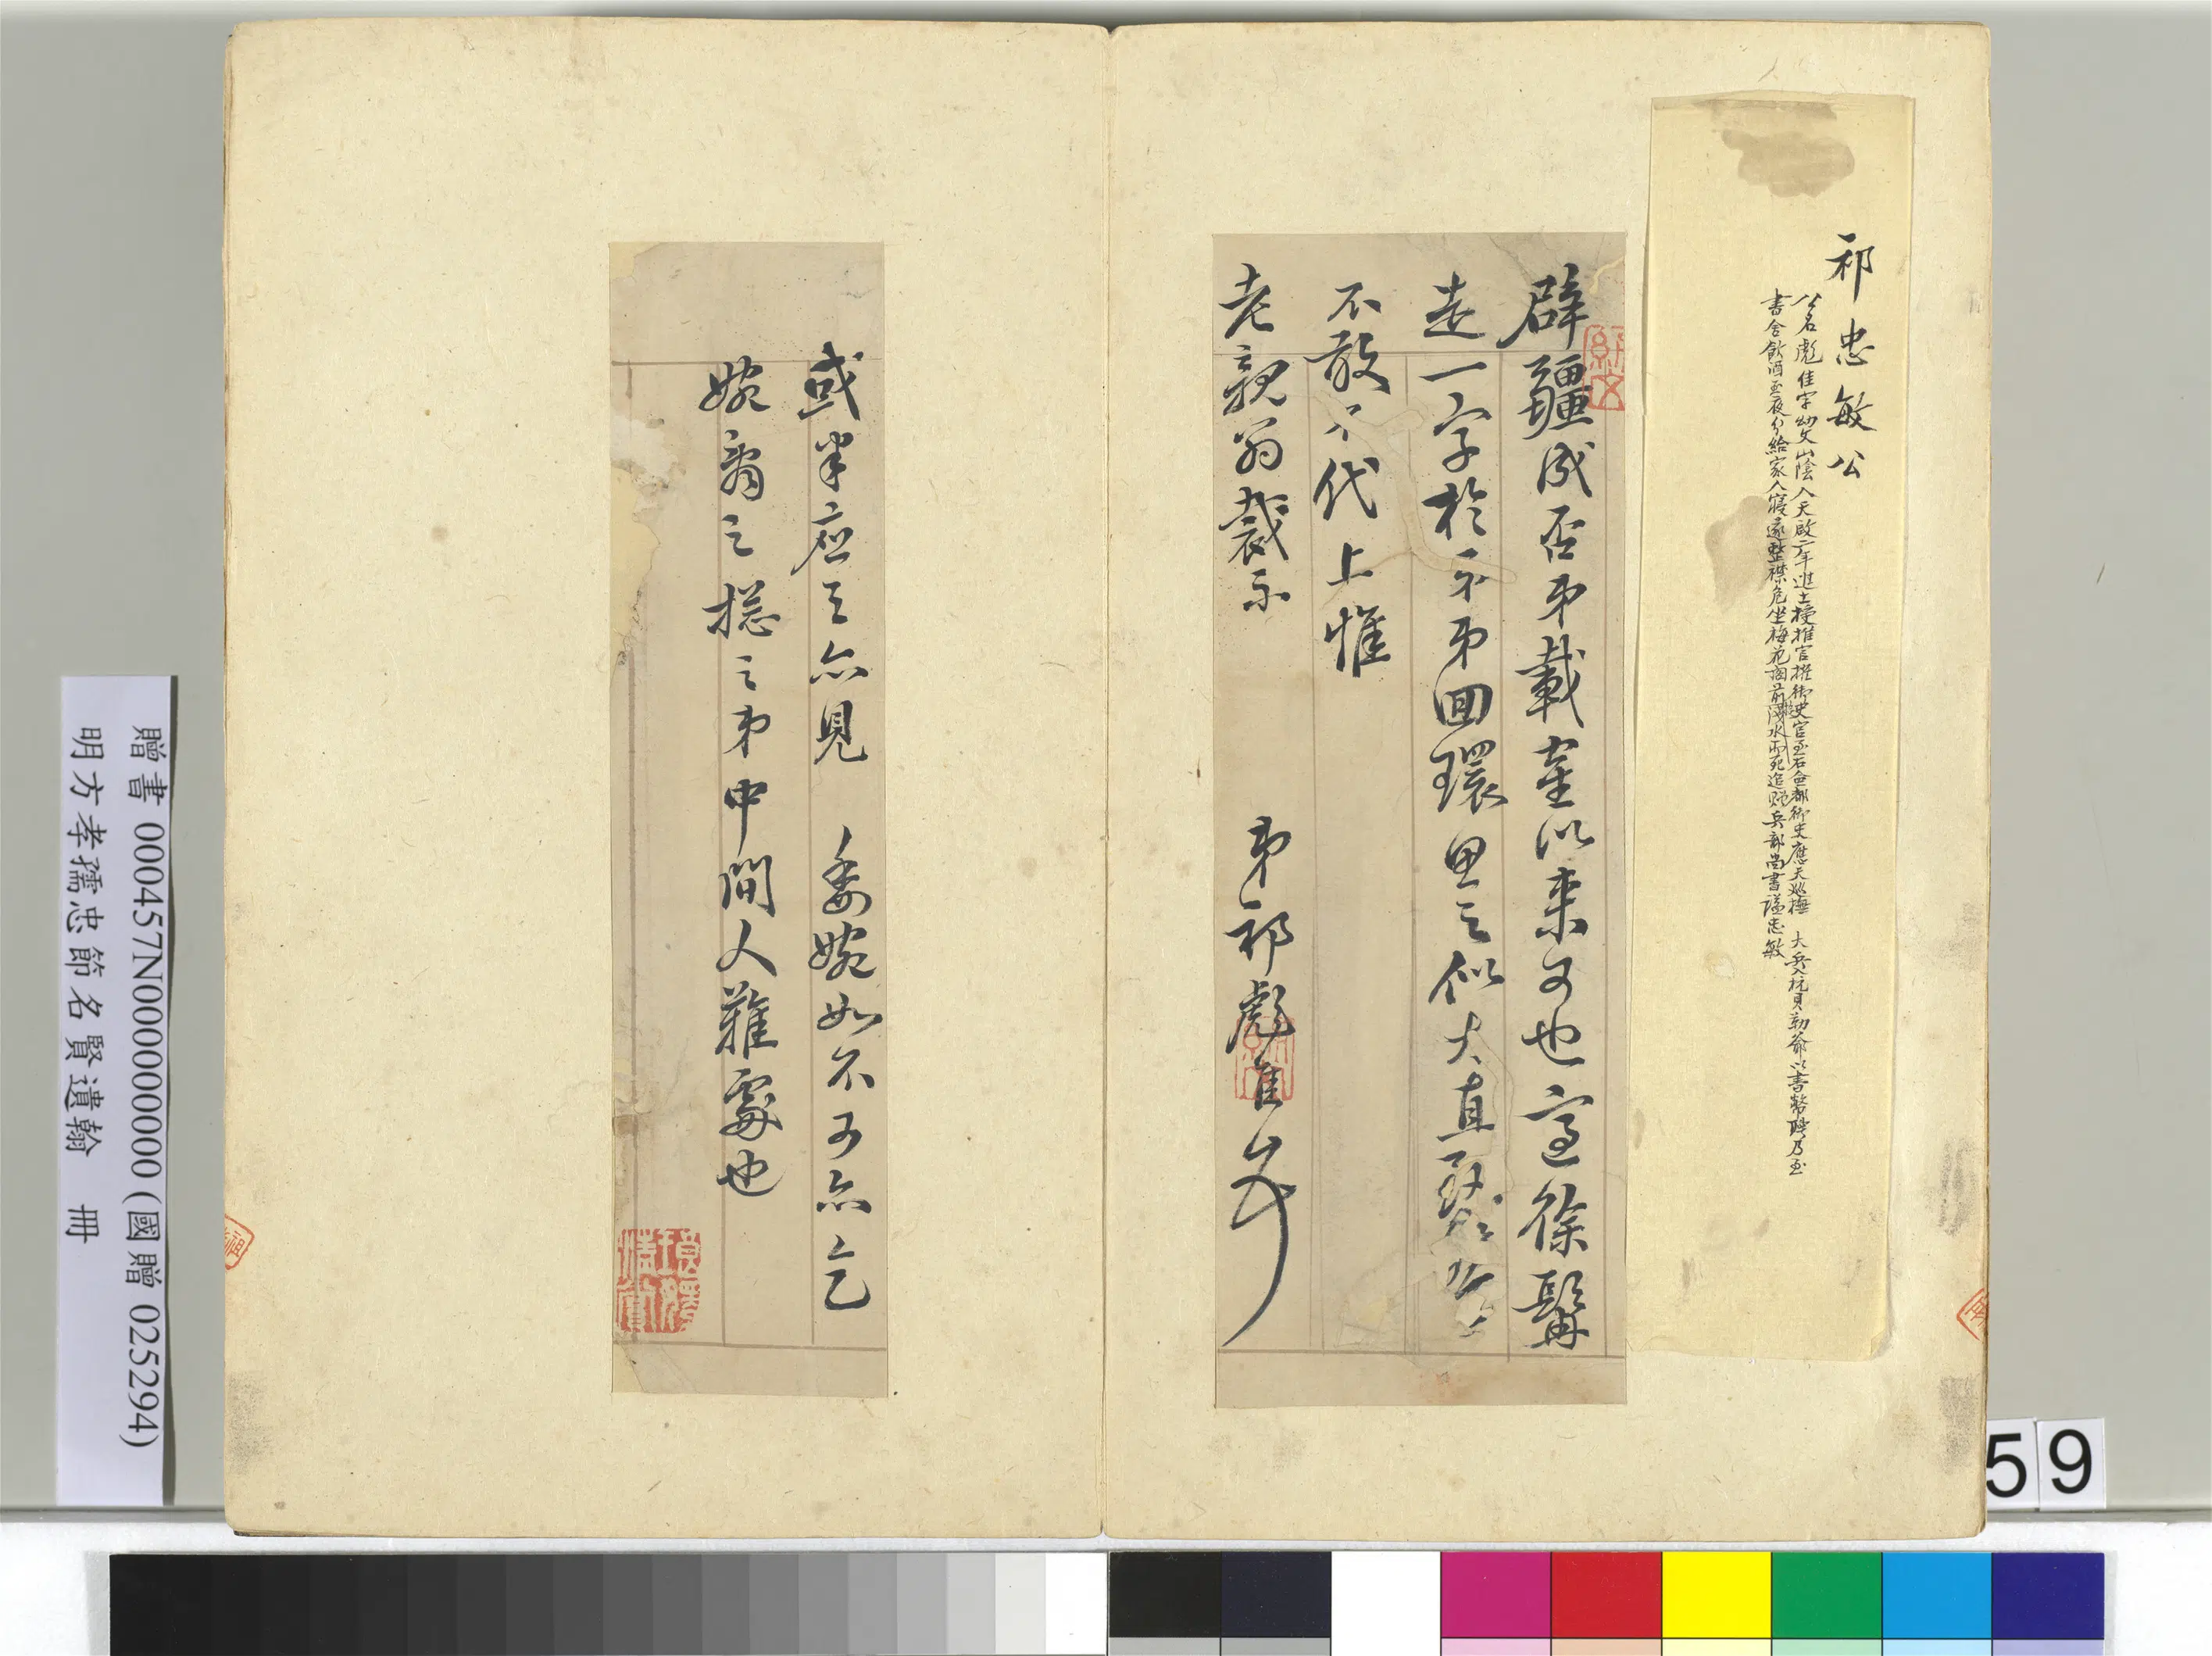 祁忠敏公
公名彪佳字幼文山陰人天啟二年進士授推官擢御史官至右僉都御史應天巡撫 大兵入杭貝勒爺以書幣聘乃至
書舍飲酒至夜分給家人寢遂整襟危坐梅花閣前淺水而死追贈兵部尚書諡忠敏
辟疆成否弟載 以來可也 徐髯
走一字於 弟回環思之似太直
不敢 代上惟
老親翁裁示
弟祁彪佳
或 應之亦見 委婉如不可亦乞
婉 之 之弟中間人難處也
贈書 000457N000000000 (國贈 025294)
明方孝孺忠節名賢遺翰 冊
59